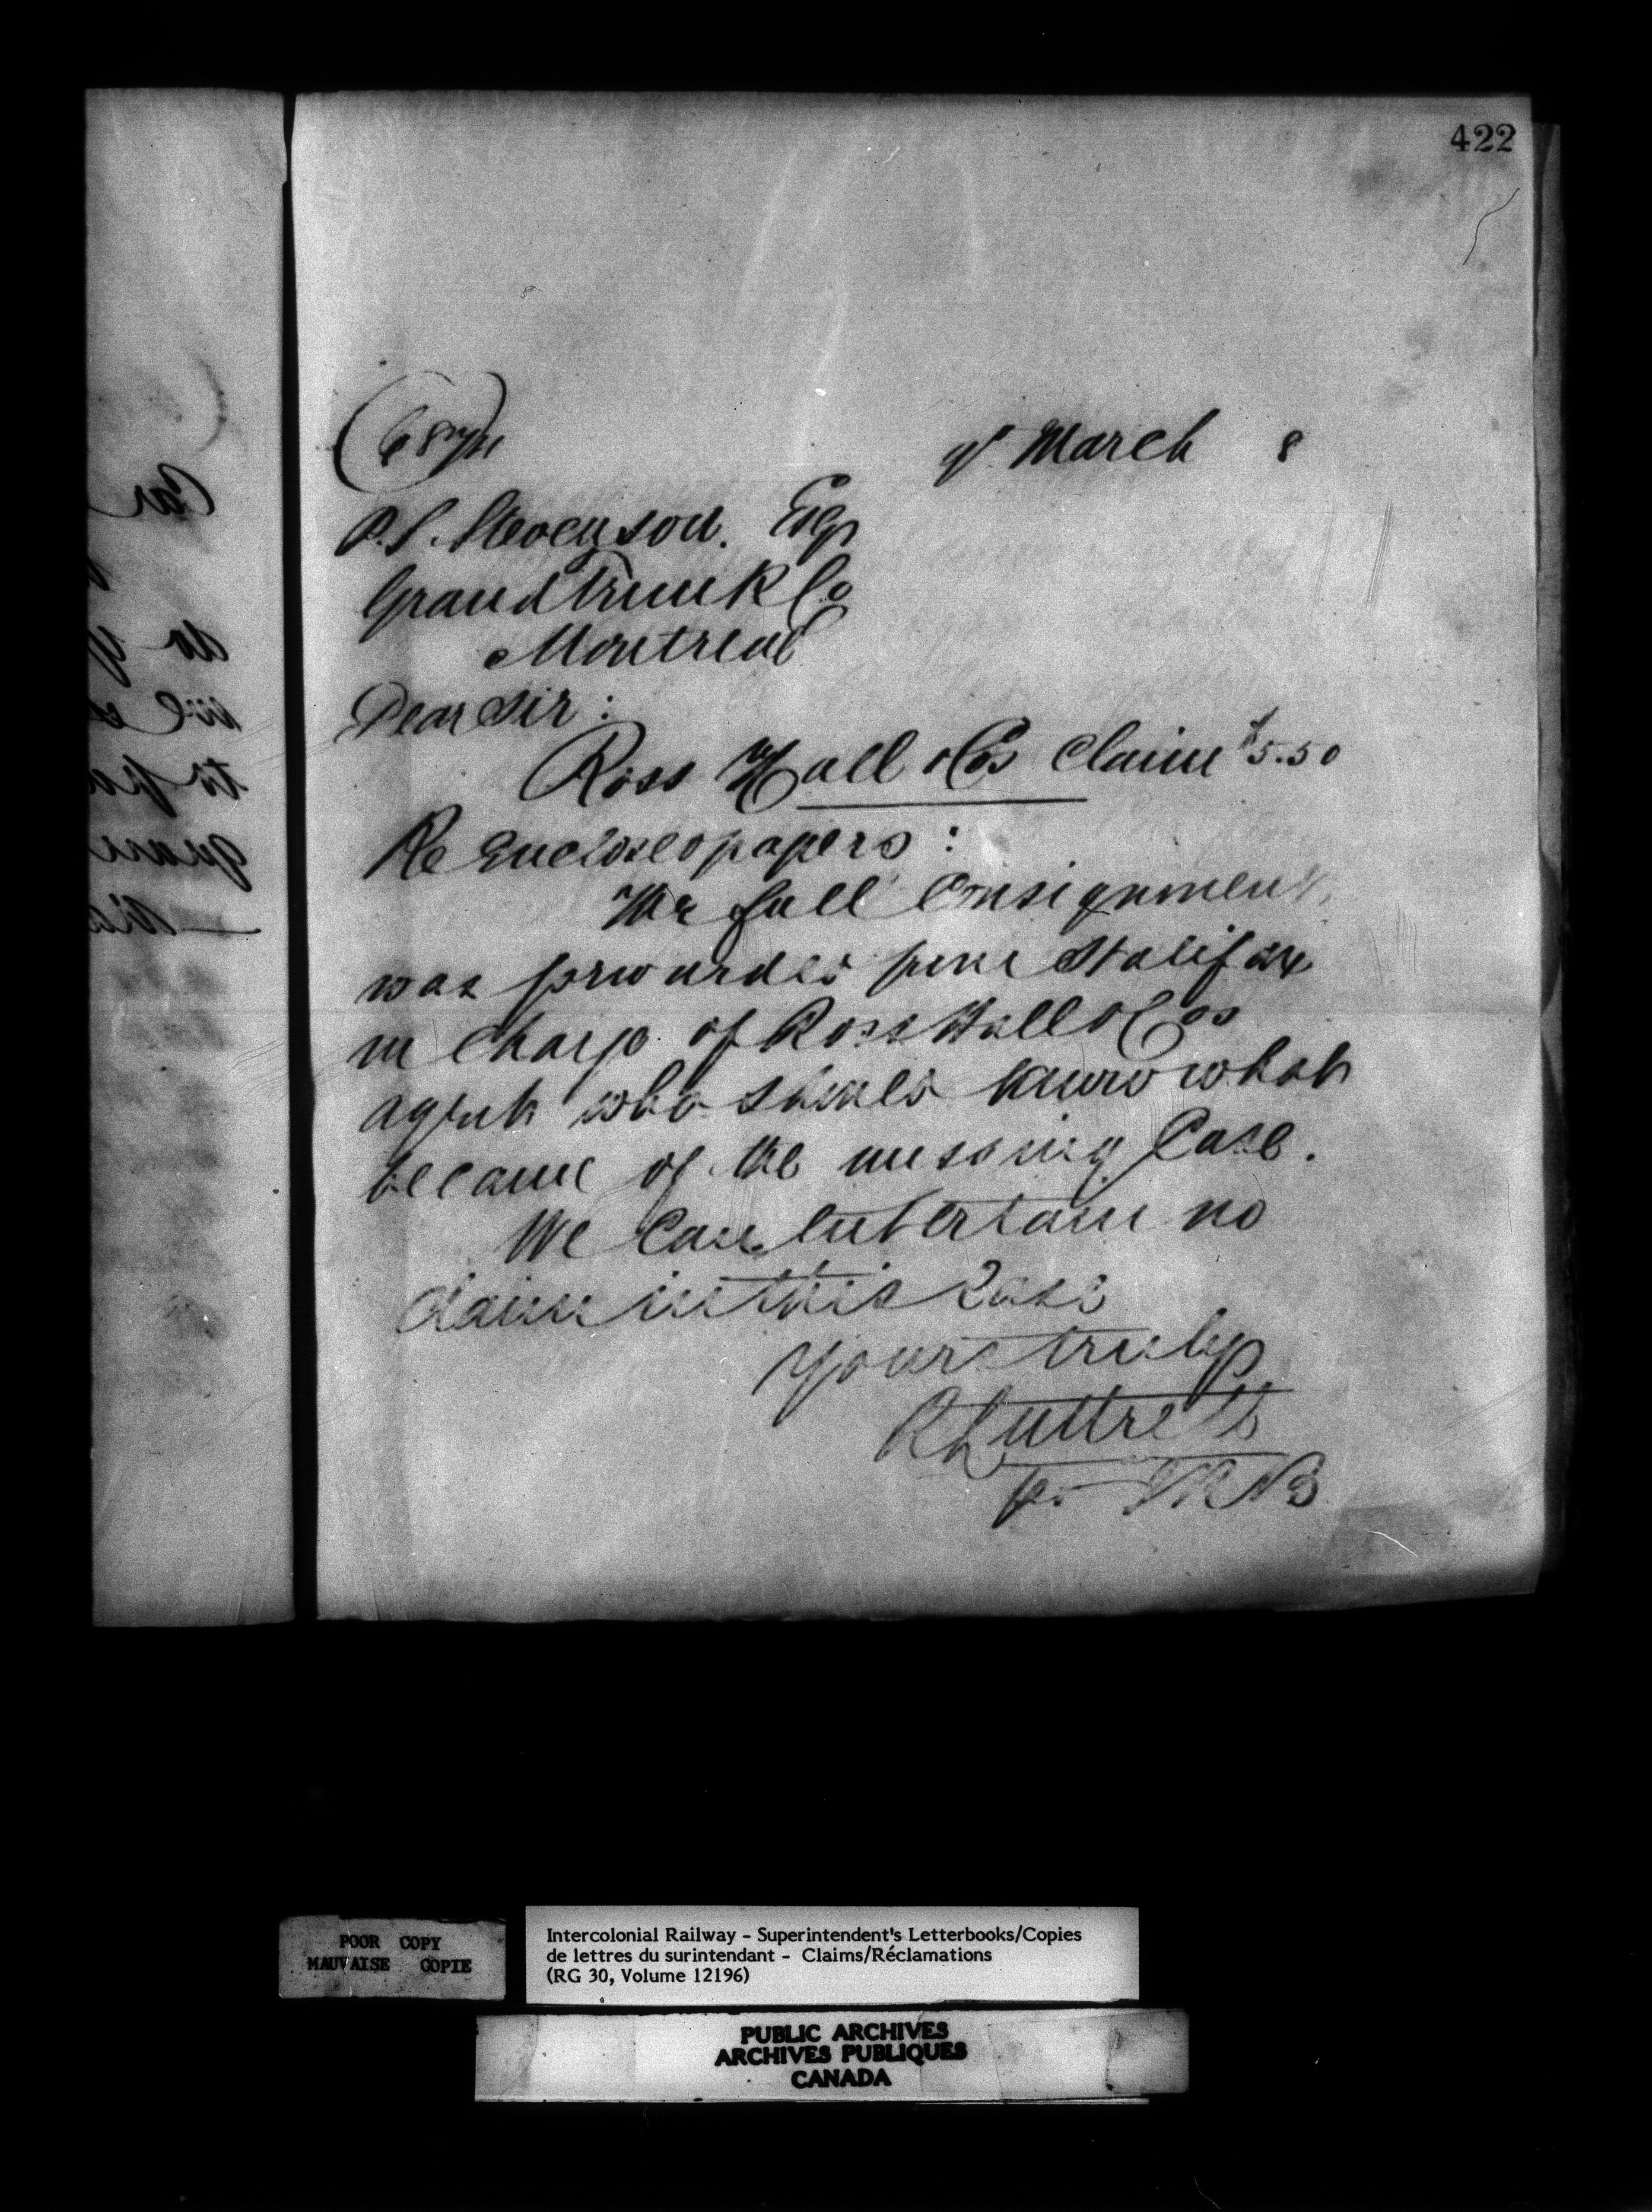 422
9th March 8
P.S. Stevenson. Esq
Grand Trunk R Co
Montreal
Dear Sir:
Ross Hall & Cos Claim $5.50
Re Enclosed papers:
The full Consignment
was forwarded from Halifax
in Charge of Ross Hall & Cos
agent who should know what
became of the missing Case.
We Can Entertain no
claim in this Case
Yours truly
R Luttrell
POOR COPY
MAUVAISE COPIE
Intercolonial Railway - Superintendent's Letterbooks/Copies
de lettres du surintendant - Claims/Réclamations
(RG 30, Volume 12196)
PUBLIC ARCHIVES
ARCHIVES PUBLIQUES
CANADA